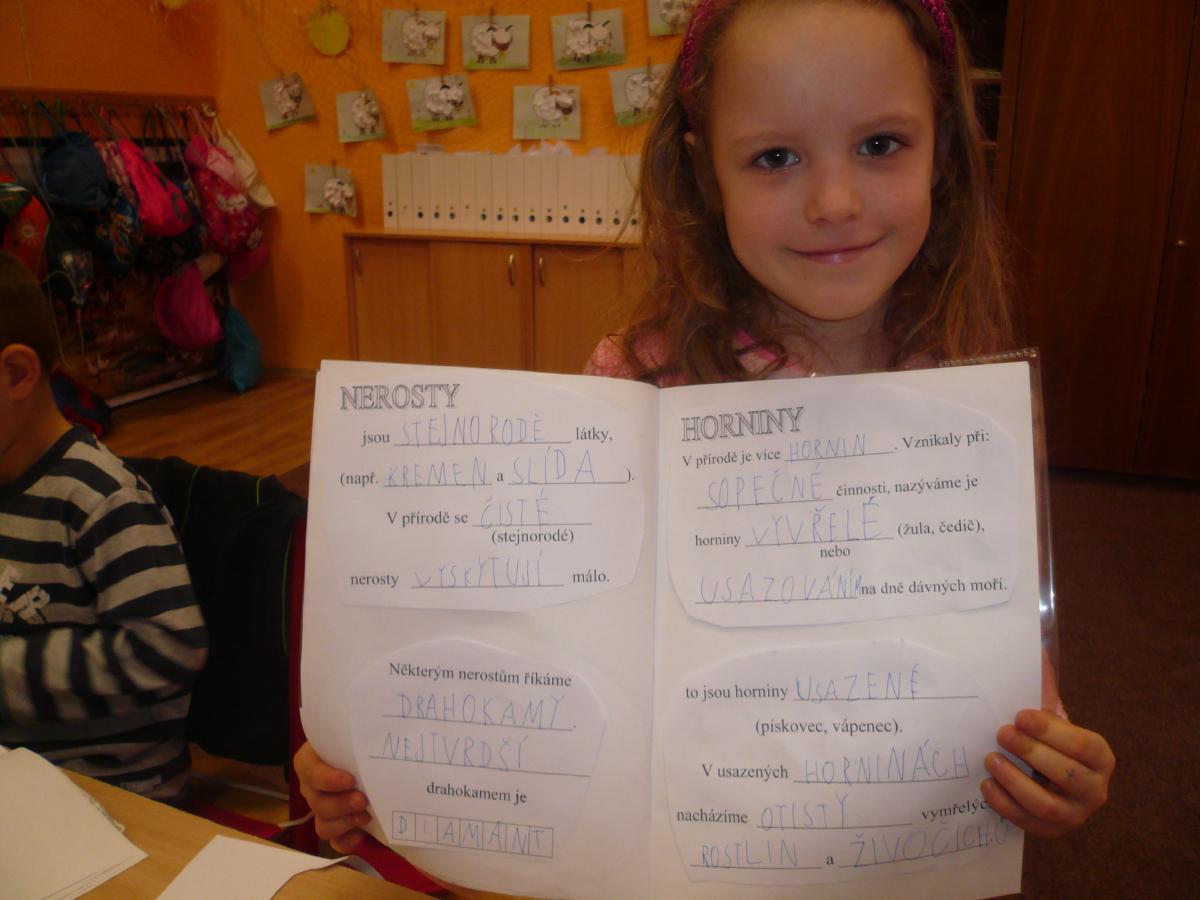 NEROSTY
jsou STEJNORODÉ látky,
(např. KŘEMEN a SLÍDA ).
V přírodě se ČISTÉ
(stejnorodé)
nerosty VYSKYTUJÍ málo.
Některým nerostům říkáme
DRAHOKAMY.
NEJTVRDŠÍ
drahokamem je
DIAMANT
HORNINY
V přírodě je více HORNIN. Vznikaly při:
SOPEČNÉ činnosti, nazýváme je
horniny VYVŘELÉ (žula, čedič),
nebo
USAZOVÁNÍM na dně dávných moří.
to jsou horniny USAZENÉ
(pískovec, vápenec).
V usazených HORNINÁCH
nacházíme OTISTY vymřelých
ROSTLIN a ŽIVOČICHŮ